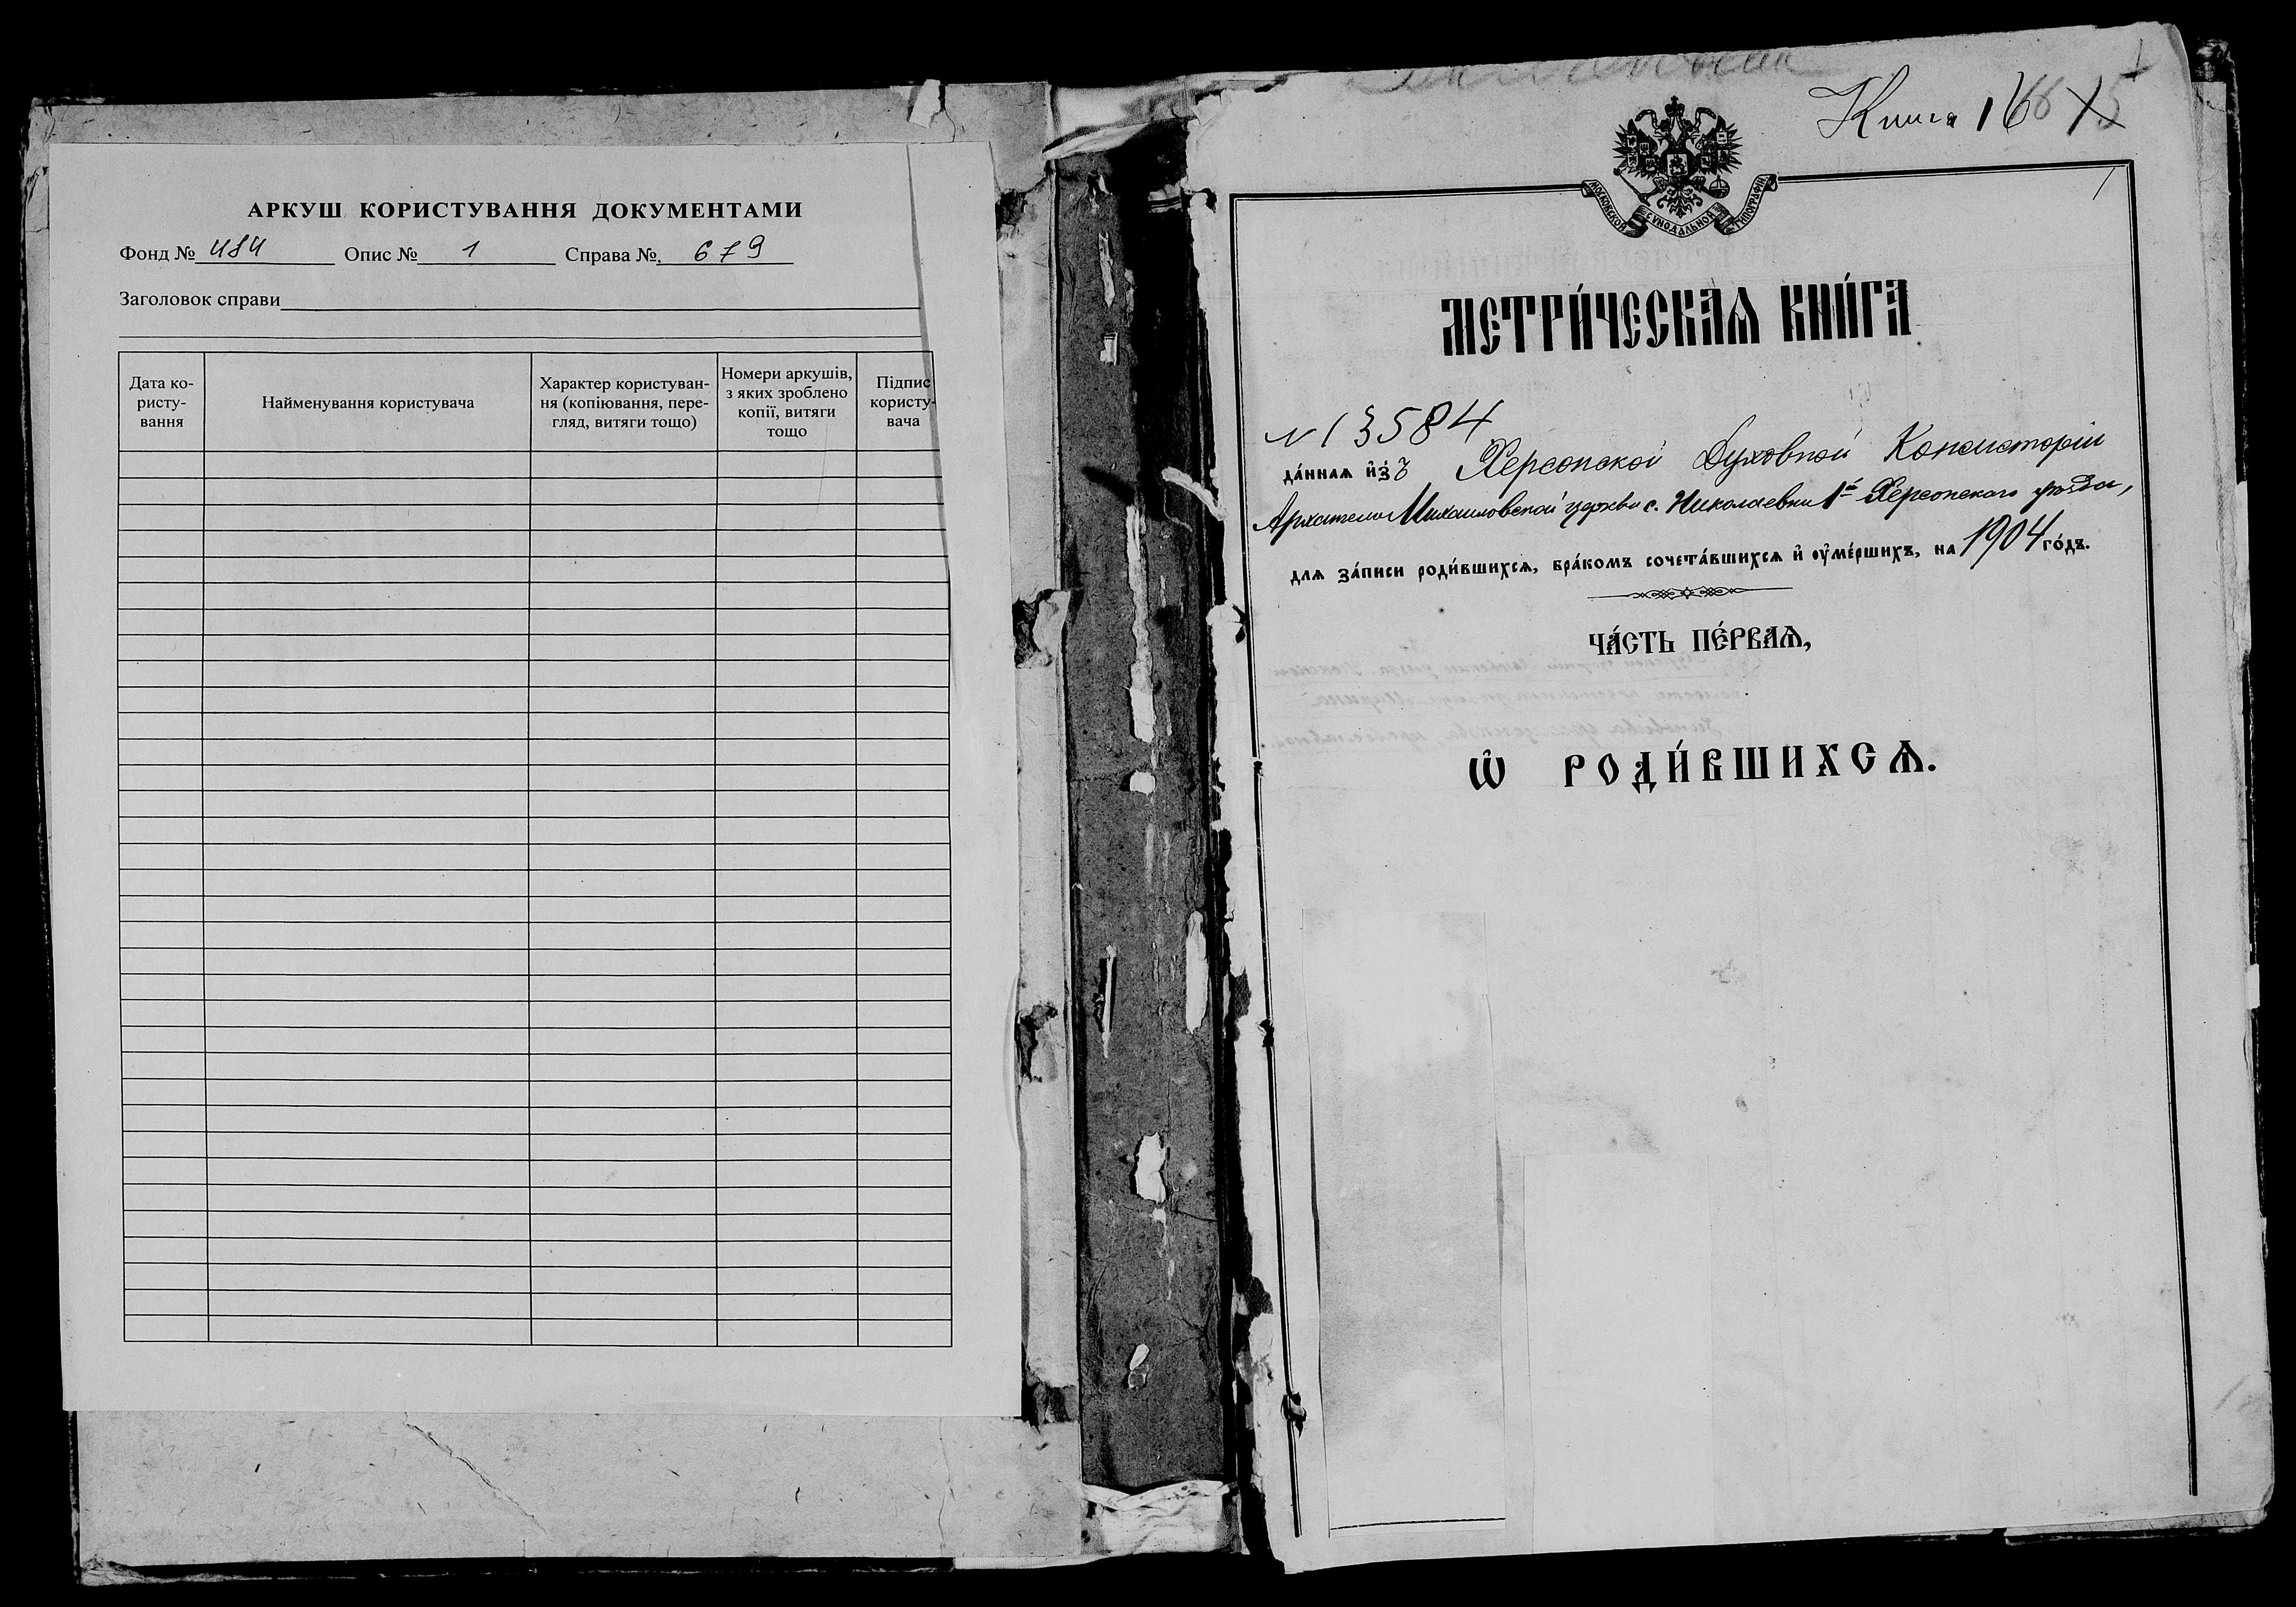 АРКУШ КОРИСТУВАННЯ ДОКУМЕНТАМИ
Фонд № 484 Опис № 1 Справа № 679
Заголовок справи
Дата ко-
ристу-
вання
Найменування користувача
Характер користуван-
ня (копіювання, пере-
гляд, витяги тощо)
Номери аркушів,
з яких зроблено
копії, витяги
тощо
Підпис
користу-
вача
Книга 166
МОСКОВСКОЙ СѴНОДАЛЬНОЙ ТИПОГРАФІИ
МЕТРИ́ЧЕСКАѦ КНИ́ГА
N 13584
да́ннаѧ и҆́зъ Херсонской Духовной Консисторіи
Архангело Михаиловской церкви с. Николаевки 1й Херсонского уѣзда,
для за́писи роди́вшихсѧ, бра́комъ сочета́вшихсѧ и҆ оу҆ме́ршихъ, на 1904 го́дъ.
ЧА́СТЬ ПЕ́РВАѦ,
Ѡ҆ РОДИ́ВШИХСѦ.